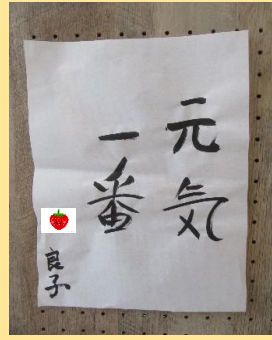 元気
一番
良子